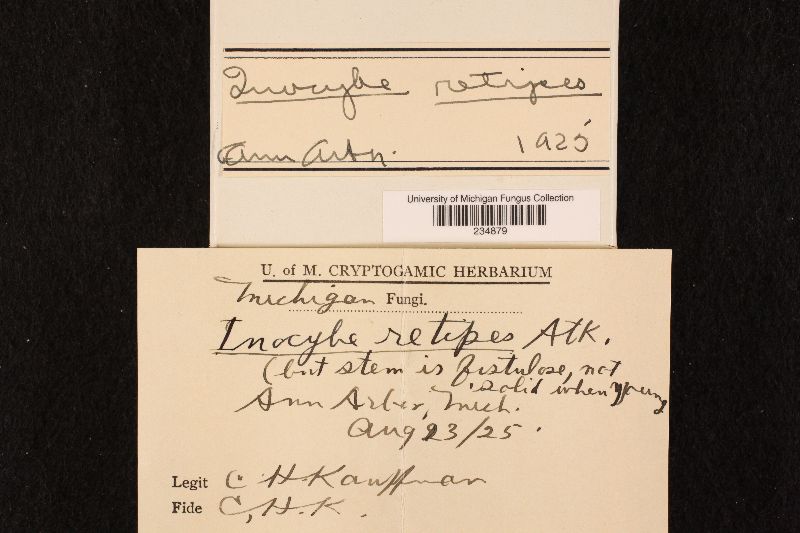 Inocybe retipes
Ann Arbor. 1925
University of Michigan Fungus Collection
234879
U. of M. CRYPTOGAMIC HERBARIUM
Michigan Fungi.
Inocybe retipes Atk.
(but stem is fistulose, not
solid when young
Ann Arbor, Mich.
Aug 23/25.
Legit C H Kauffman
Fide C, H. K.